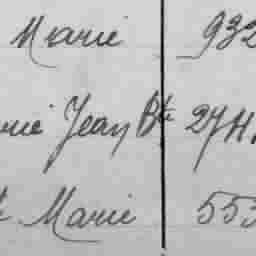 Marie 932
rie Jean Bte 274
Marie 553